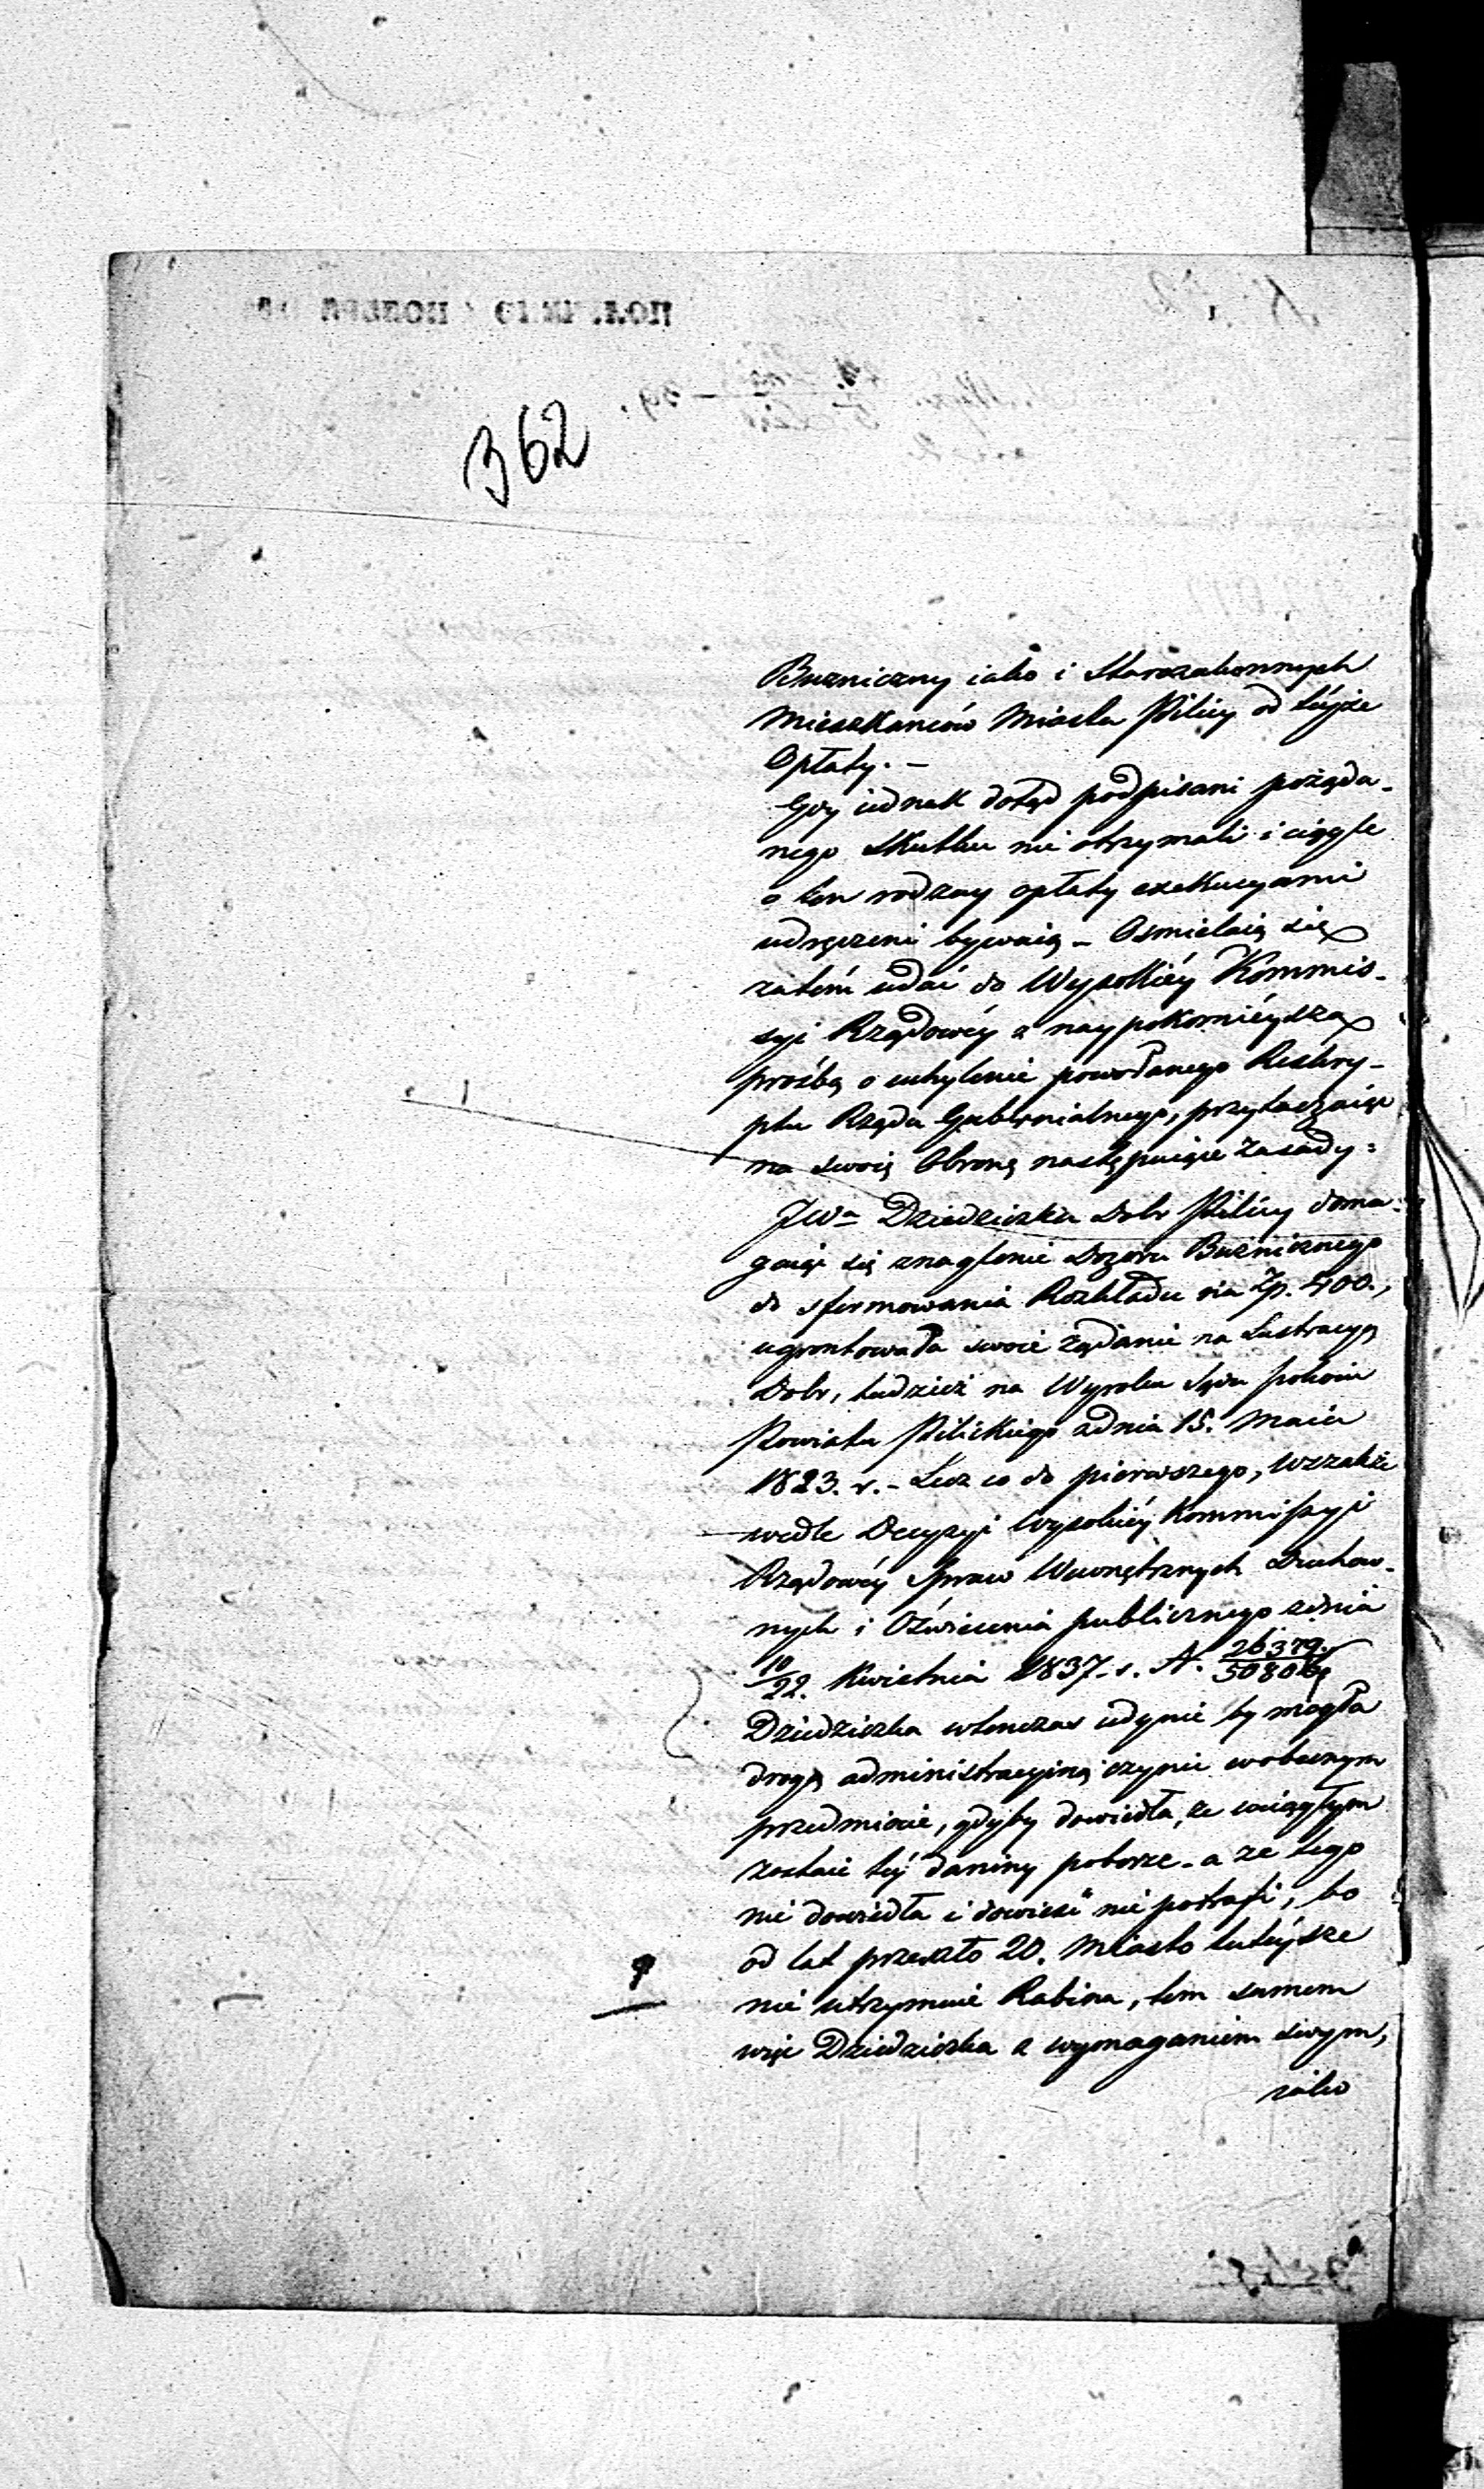 362
Buzniczny iako i Starozakonnych
Mieszkanców Miasta Pilicy od téyże
Opłaty. –
Gdy iednak dotąd podpisani pożąda-
nego Skutku nie otrzymali i ciągle
o ten rodzay opłaty exekucyami
udręczeni bywaią – Osmielaią się
zatém udać do Wysokiéy Kommis-
syi Rządowéy z naypokorniéyszą
prośbą o uchylenie powołanego Reskry-
ptu Rządu Gubernialnego, przytaczaiąc
na swoię Obronę następuiące zasady:
JWa Dziedziczka Dobr Pilicy doma-
gaiąc się znaglenie Dozoru Bużnicznego
do sformowania Rozkładu na Zp. 400.,
ugrontowała swoie żądanie na Lustracyą
Dobr, tudzież na Wyroku Sądu pokoiu
Powiatu Pilickiego z dnia 15. Maia
1823. r. – Lecz co do pierwszego, wszakże
wedle Decyzyi Wysokiéy Kommissyi
Rządowéy Spraw Wewnętrznych Duchow-
nych i Oświecenia publicznego z dnia
10/22. Kwietnia 1837. r. N. 26379/50806
Dziedziczka wtenczas iedynie by mogła
drogą administracyiną czynić w obecnym
przedmiocie, gdyby dowiodła, że w ciągłym
zostaie téy daniny poborze – a że tego
nie dowiodła i dowieść nie potrafi, bo
od lat przeszło 20. Miasto tutéysze
nie utrzymuie Rabina, tem samem
więc Dziedziczka z wymaganiem swym,
iako